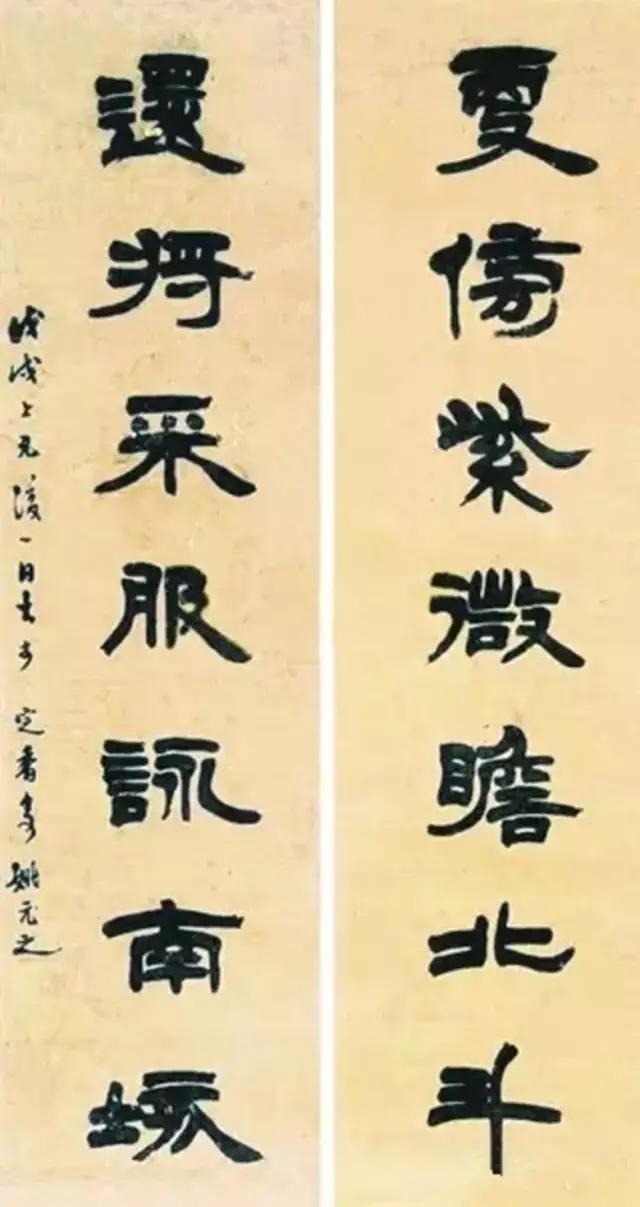 更傍紫微瞻北斗
還將采服詠南垓
戊戌上元後一日書于定香 姚元之